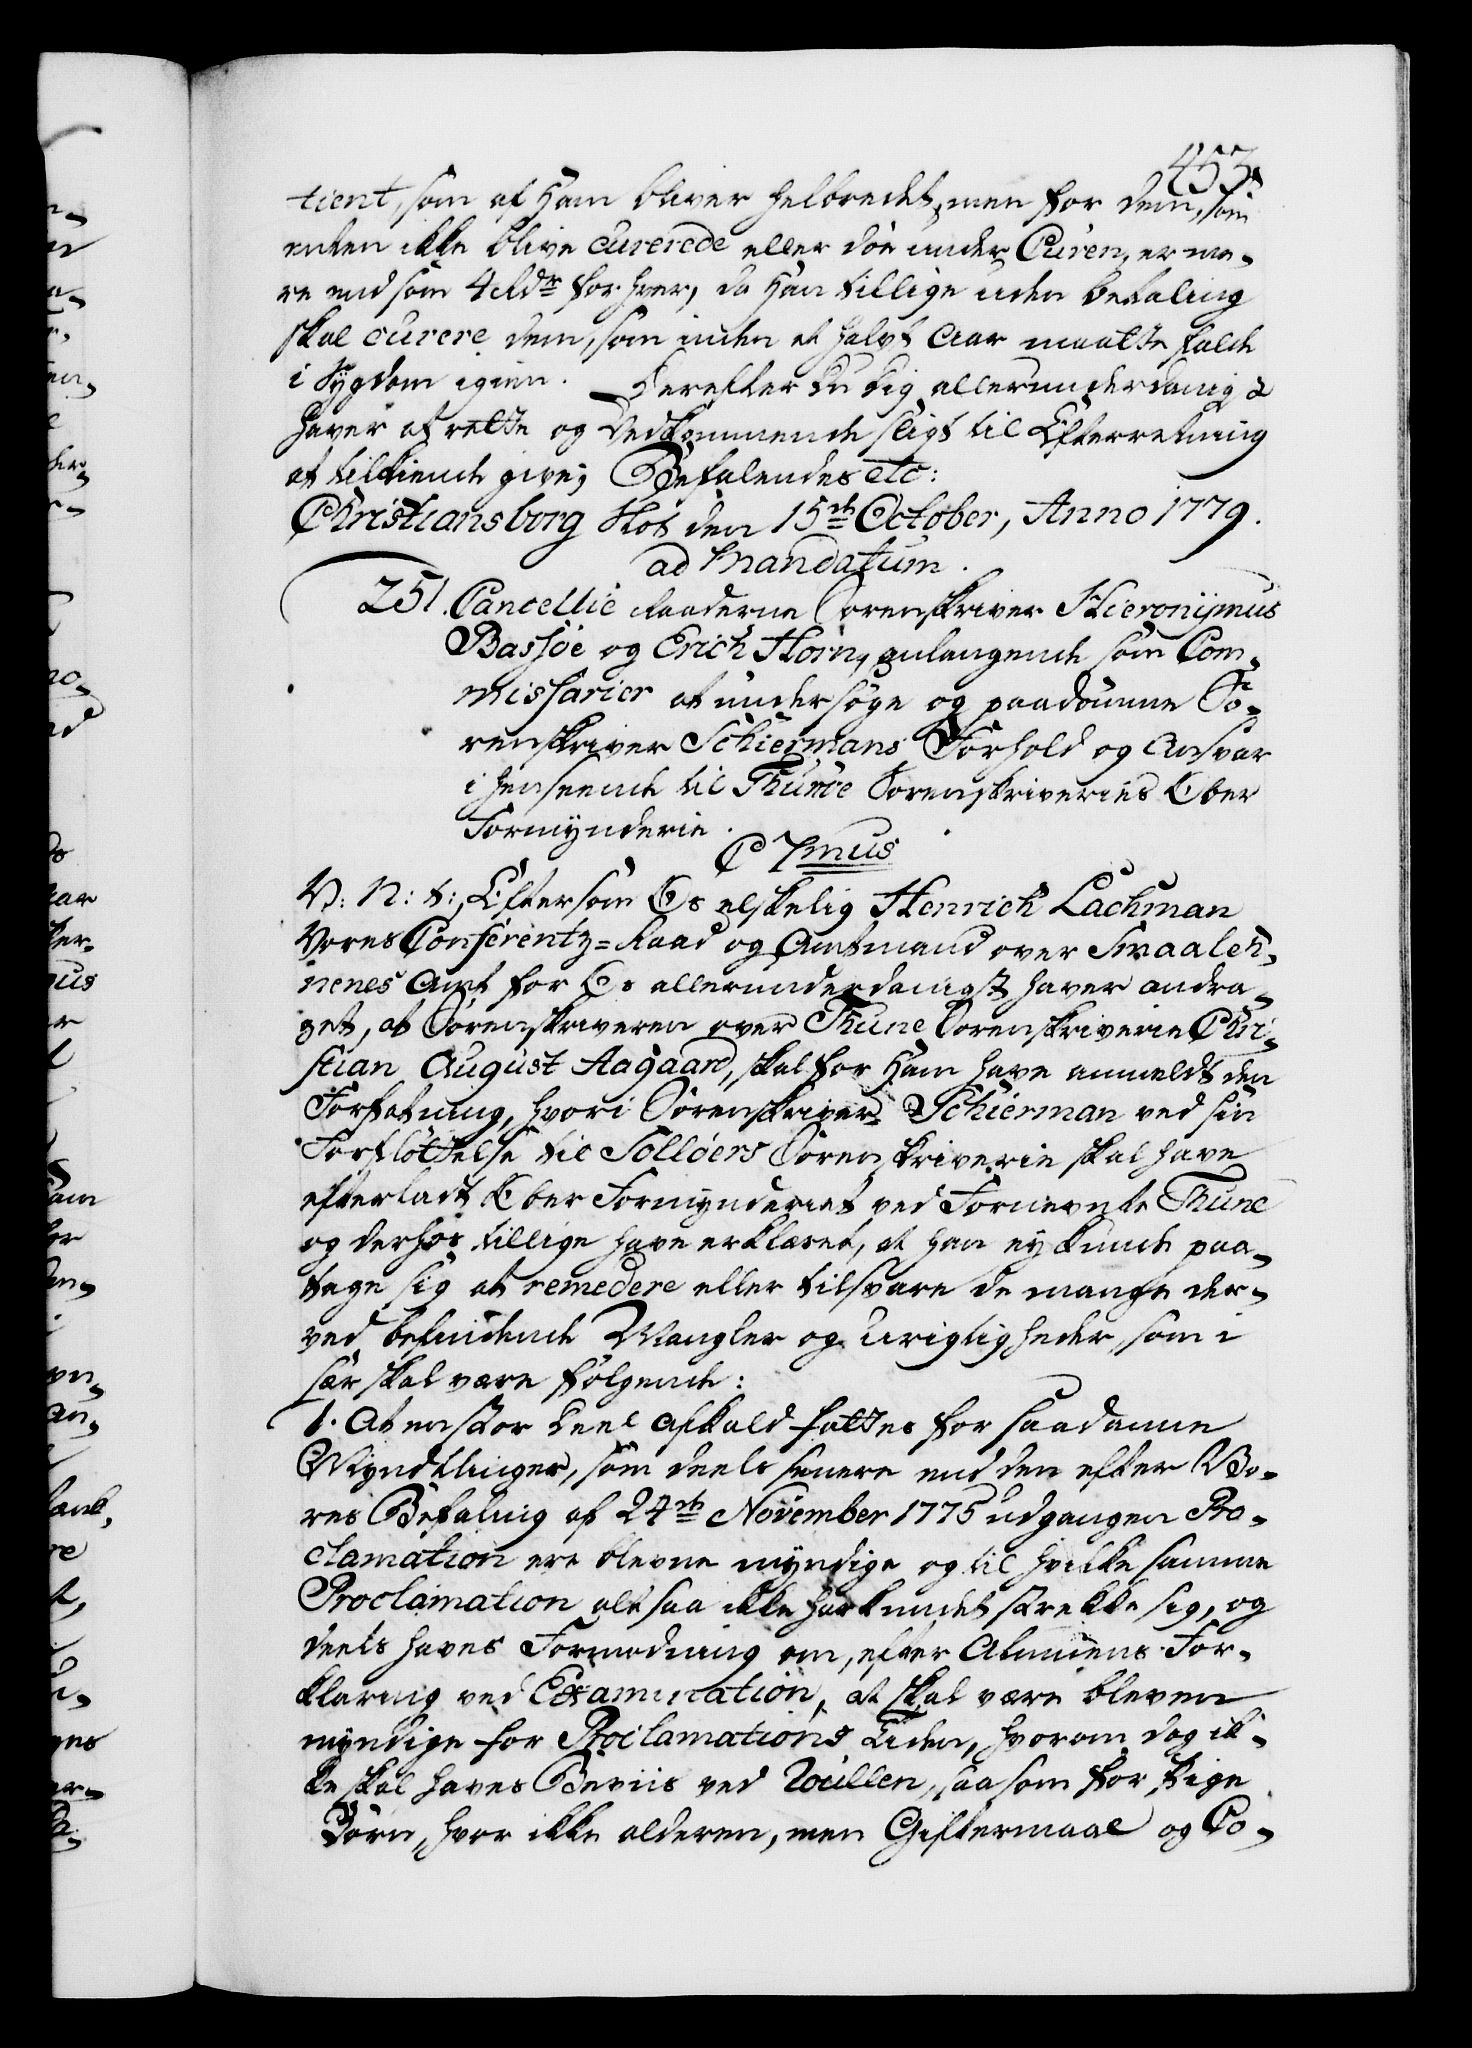 453.
tient, som af Ham bliver helbredet, men for dem, som
enten ikke blive curerede eller döe under Curen, er me-
re end som 4 Rdr for hver, da Han tillige uden betaling
skal curere dem, som inden et halvt Aar maatte falde
i Sygdom igien. Derefter du dig allerunderdanigst
haver at rette og Vedkommende sligt til Efterretning
at tilkiende give; Befalendes etc:
Christiansborg Slot den 15de October, Anno 1779.
ad Mandatum.
251. Cancellie Raaderne Sorenskriver Hieronijmus
Bassöe og Erich Horn, anlangende som Com-
missarier at undersöge og paadömme So-
renskriver Schiermans Forhold og Ansvar
i henseende til Thunöe Sorenskriveries Ober
Formynderie.
C 7mus
V: N: t:, Eftersom Os elskelig Henrich Lachman
Vores Conferentz-Raad og Amtmand over Smaaleh-
nenes Amt for Os allerunderdanigst haver andra-
get, at Sorenskriveren over Thune Sorenskriverie Chri-
stian August Aagaard, skal for Ham have anmeldt den
Forfatning, hvori Sorenskriver Schierman ved sin
Forflöttelse til Sollöers Sorenskriverie skal have
efterladt Ober Formynderiet ved Fornevnte Thune
og derhos tillige have erklæret, at han ey kunde paa-
tage sig at remedere eller tilsvare de mange der-
ved befindende Mangler og Urigtigheder, som i
sær skal være fölgende:
1. At en stor Deel Afkald fattes for saadanne
Myndtlinger, som deels senere end den efter Vo-
res Befaling af 24de November 1775 udgangen Pro-
clamation ere blevne myndige og til hvilke samme
Proclamation altsaa ikke har kundet strekke sig, og
deels haves Formodning om, efter Almuens For-
klaring ved Examination, at skal være bleven
myndige for Proclamations Tiden, hvorom dog ik-
ke skal haves Beviis ved Rullen, saasom for Pige
Börn, hvor ikke alderen, men Giftermaal og Co-